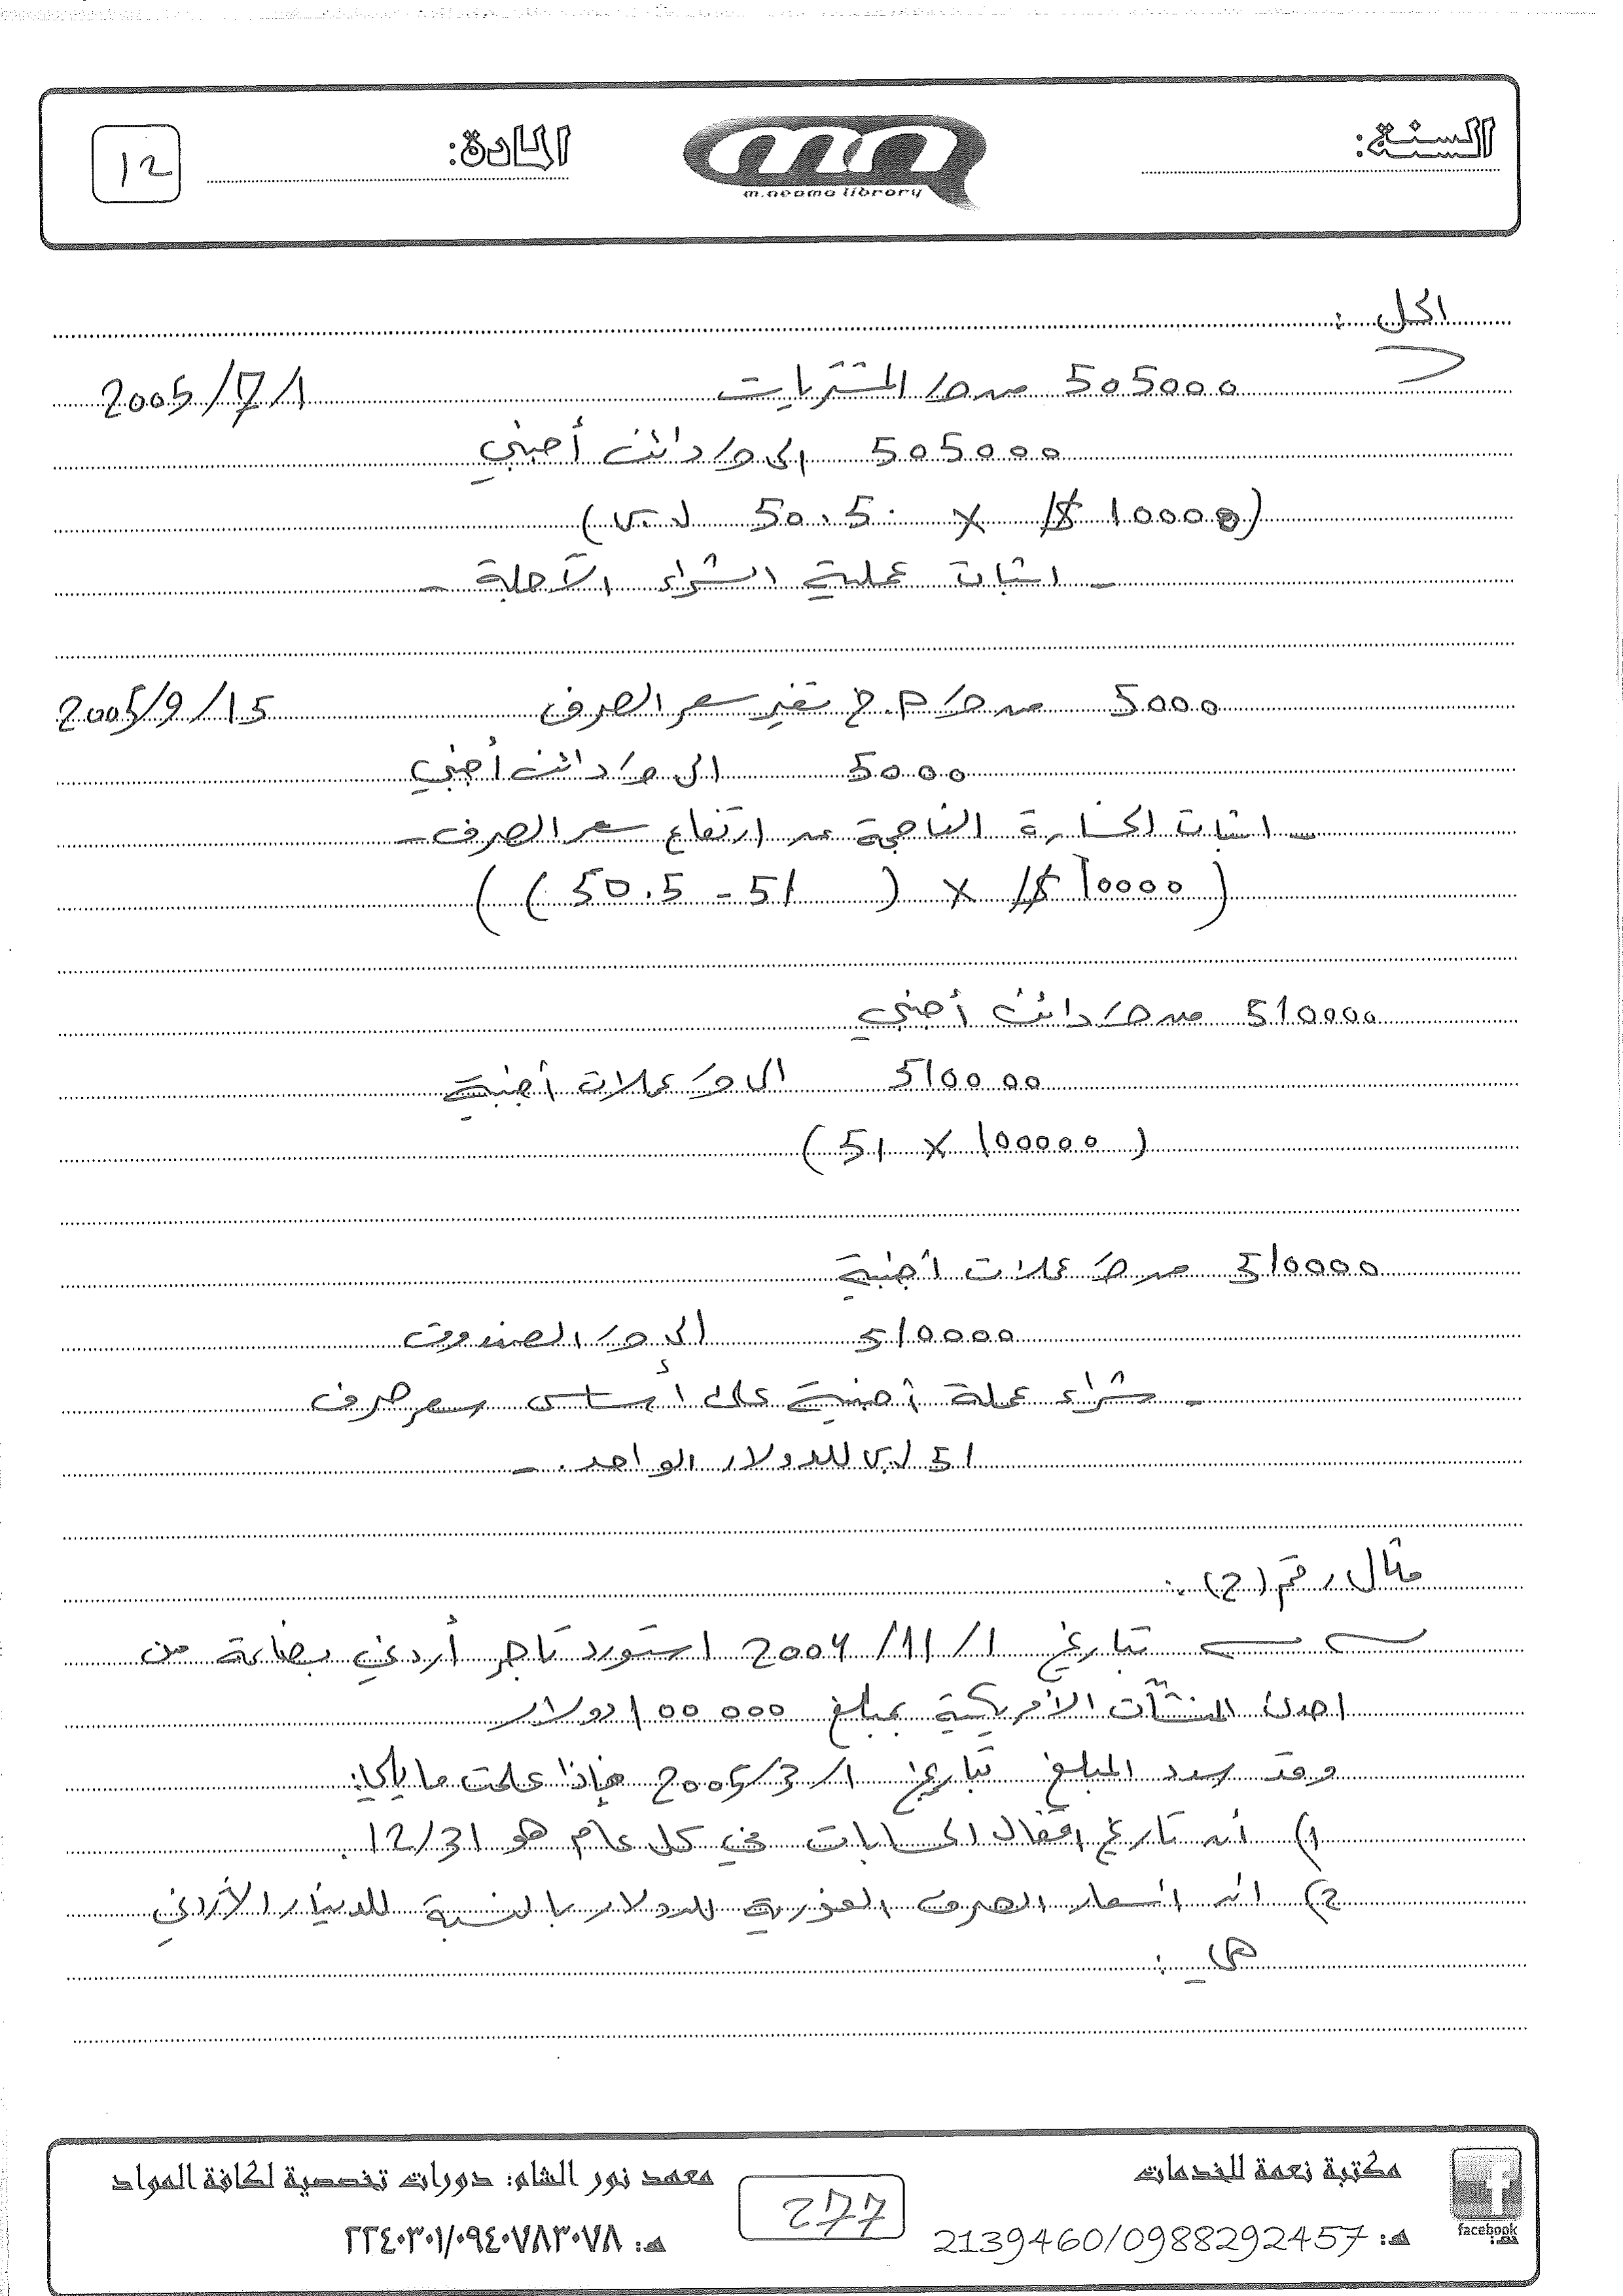 السنة:
المادة:
12
m.neama library
الحل:
505000 من ح/ المشتريات 2005/7/1
505000 الى ح/ دائن أجنبي
(10000 $ × 50.50 ل.س)
- اثبات عملية الشراء الآجلة -
5000 من ح/ م.خ تغير سعر الصرف 2005/9/15
5000 الى ح/ دائن أجنبي
- اثبات الخسارة الناجمة عن ارتفاع سعر الصرف -
(10000 $ × (51 - 50.5))
510000 من ح/ دائن أجنبي
510000 الى ح/ عملات أجنبية
(100000 × 51)
510000 من ح/ عملات اجنبية
510000 الى ح/ الصندوق
- شراء عملة أجنبية على أساس سعر صرف
51 ل.س للدولار الواحد. -
مثال رقم (2):
بتاريخ 1/11/2004 استورد تاجر أردني بضاعة من
احدى المنشآت الأمريكية بمبلغ 100 000 دولار
وقد سدد المبلغ بتاريخ 1/3/2005 فإذا علمت ما يلي:
1) أن تاريخ اقفال الحسابات في كل عام هو 12/31.
2) ان أسعار الصرف الفورية للدولار بالنسبة للدينار الأردني
هي:
مكتبة نعمة للخدمات
هـ: 2139460/0988292457
277
معهد نور الشام: دورات تخصصية لكافة المواد
هـ: ٢٢٤٠٣٠١/٠٩٤٠٧٨٣٠٧٨
facebook